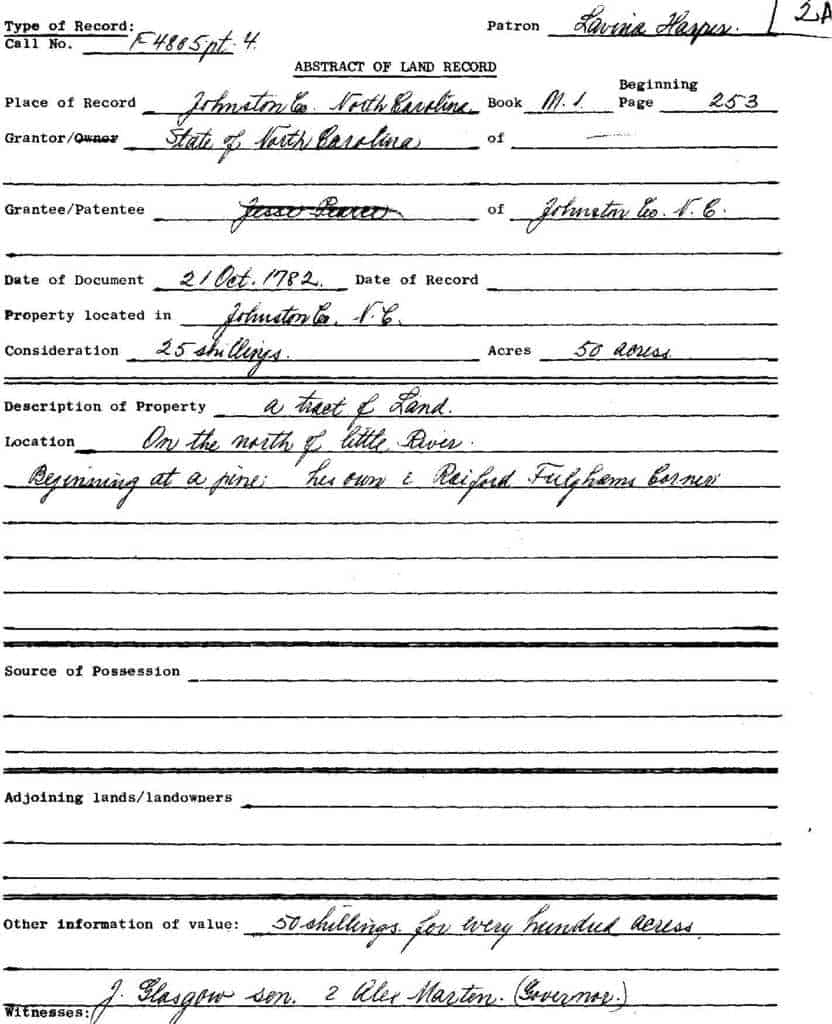 2A
Type of Record: Patron Lavina Harper.
Call No. F 4805 pt. 4.
ABSTRACT OF LAND RECORD
Beginning
Place of Record Johnston Co. North Carolina Book M. 1. Page 253
Grantor/Owner State of North Carolina of —
Grantee/Patentee Jesse Pearce of Johnston Co. N. C.
Date of Document 21 Oct. 1782. Date of Record
Property located in Johnston Co. N.C.
Consideration 25 shillings. Acres 50 acres
Description of Property a tract of Land.
Location On the north of little River.
Beginning at a pine; his own & Raiford Fulghams Corner
Source of Possession
Adjoining lands/landowners
Other information of value: 50 shillings for every hundred acress
J. Glasgow sen. 2 Alex Marten. (Governor.)
Witnesses: